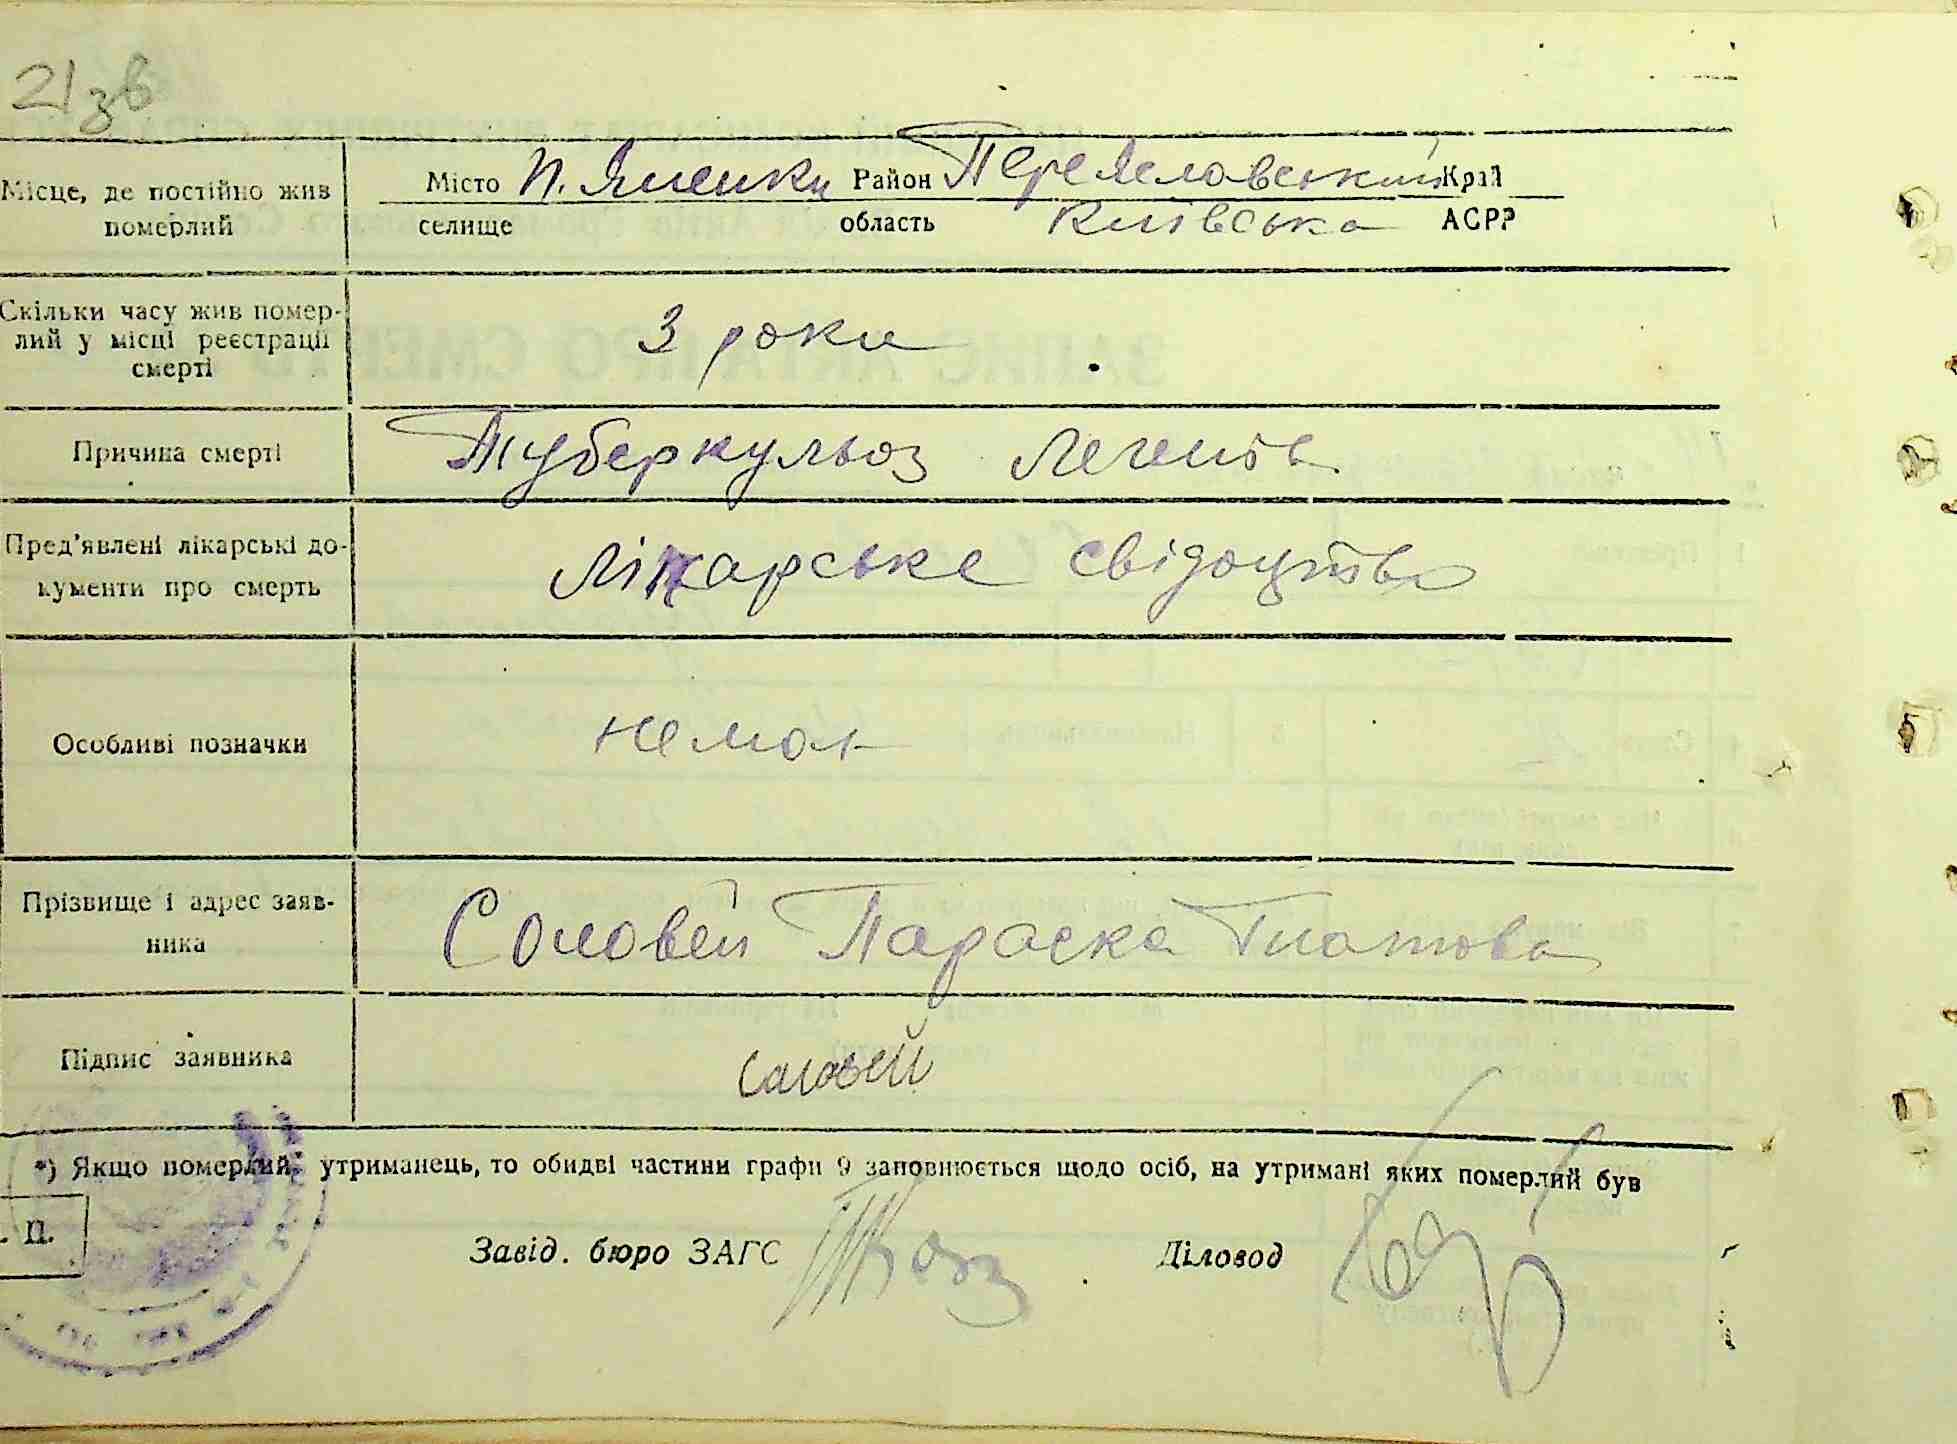 21зв
Місце, де постійно жив
померлий
Місто П. Яненки Район Переяславський Край
селище область Київська АСРР
Скільки часу жив помер-
лий у місці реєстрації
смерті
3 роки
Причина смерті
Туберкульоз Легенів
Пред'явлені лікарські до-
кументи про смерть
лікарське свідоцтво
Особливі позначки
немає
Прізвище і адрес заяв-
ника
Соловей Параска
Підпис заявника
Соловей
*) Якщо померлий, утриманець, то обидві частини графи 9 заповнюється щодо осіб, на утримані яких померлий був
. П.
Завід. бюро ЗАГС
Діловод